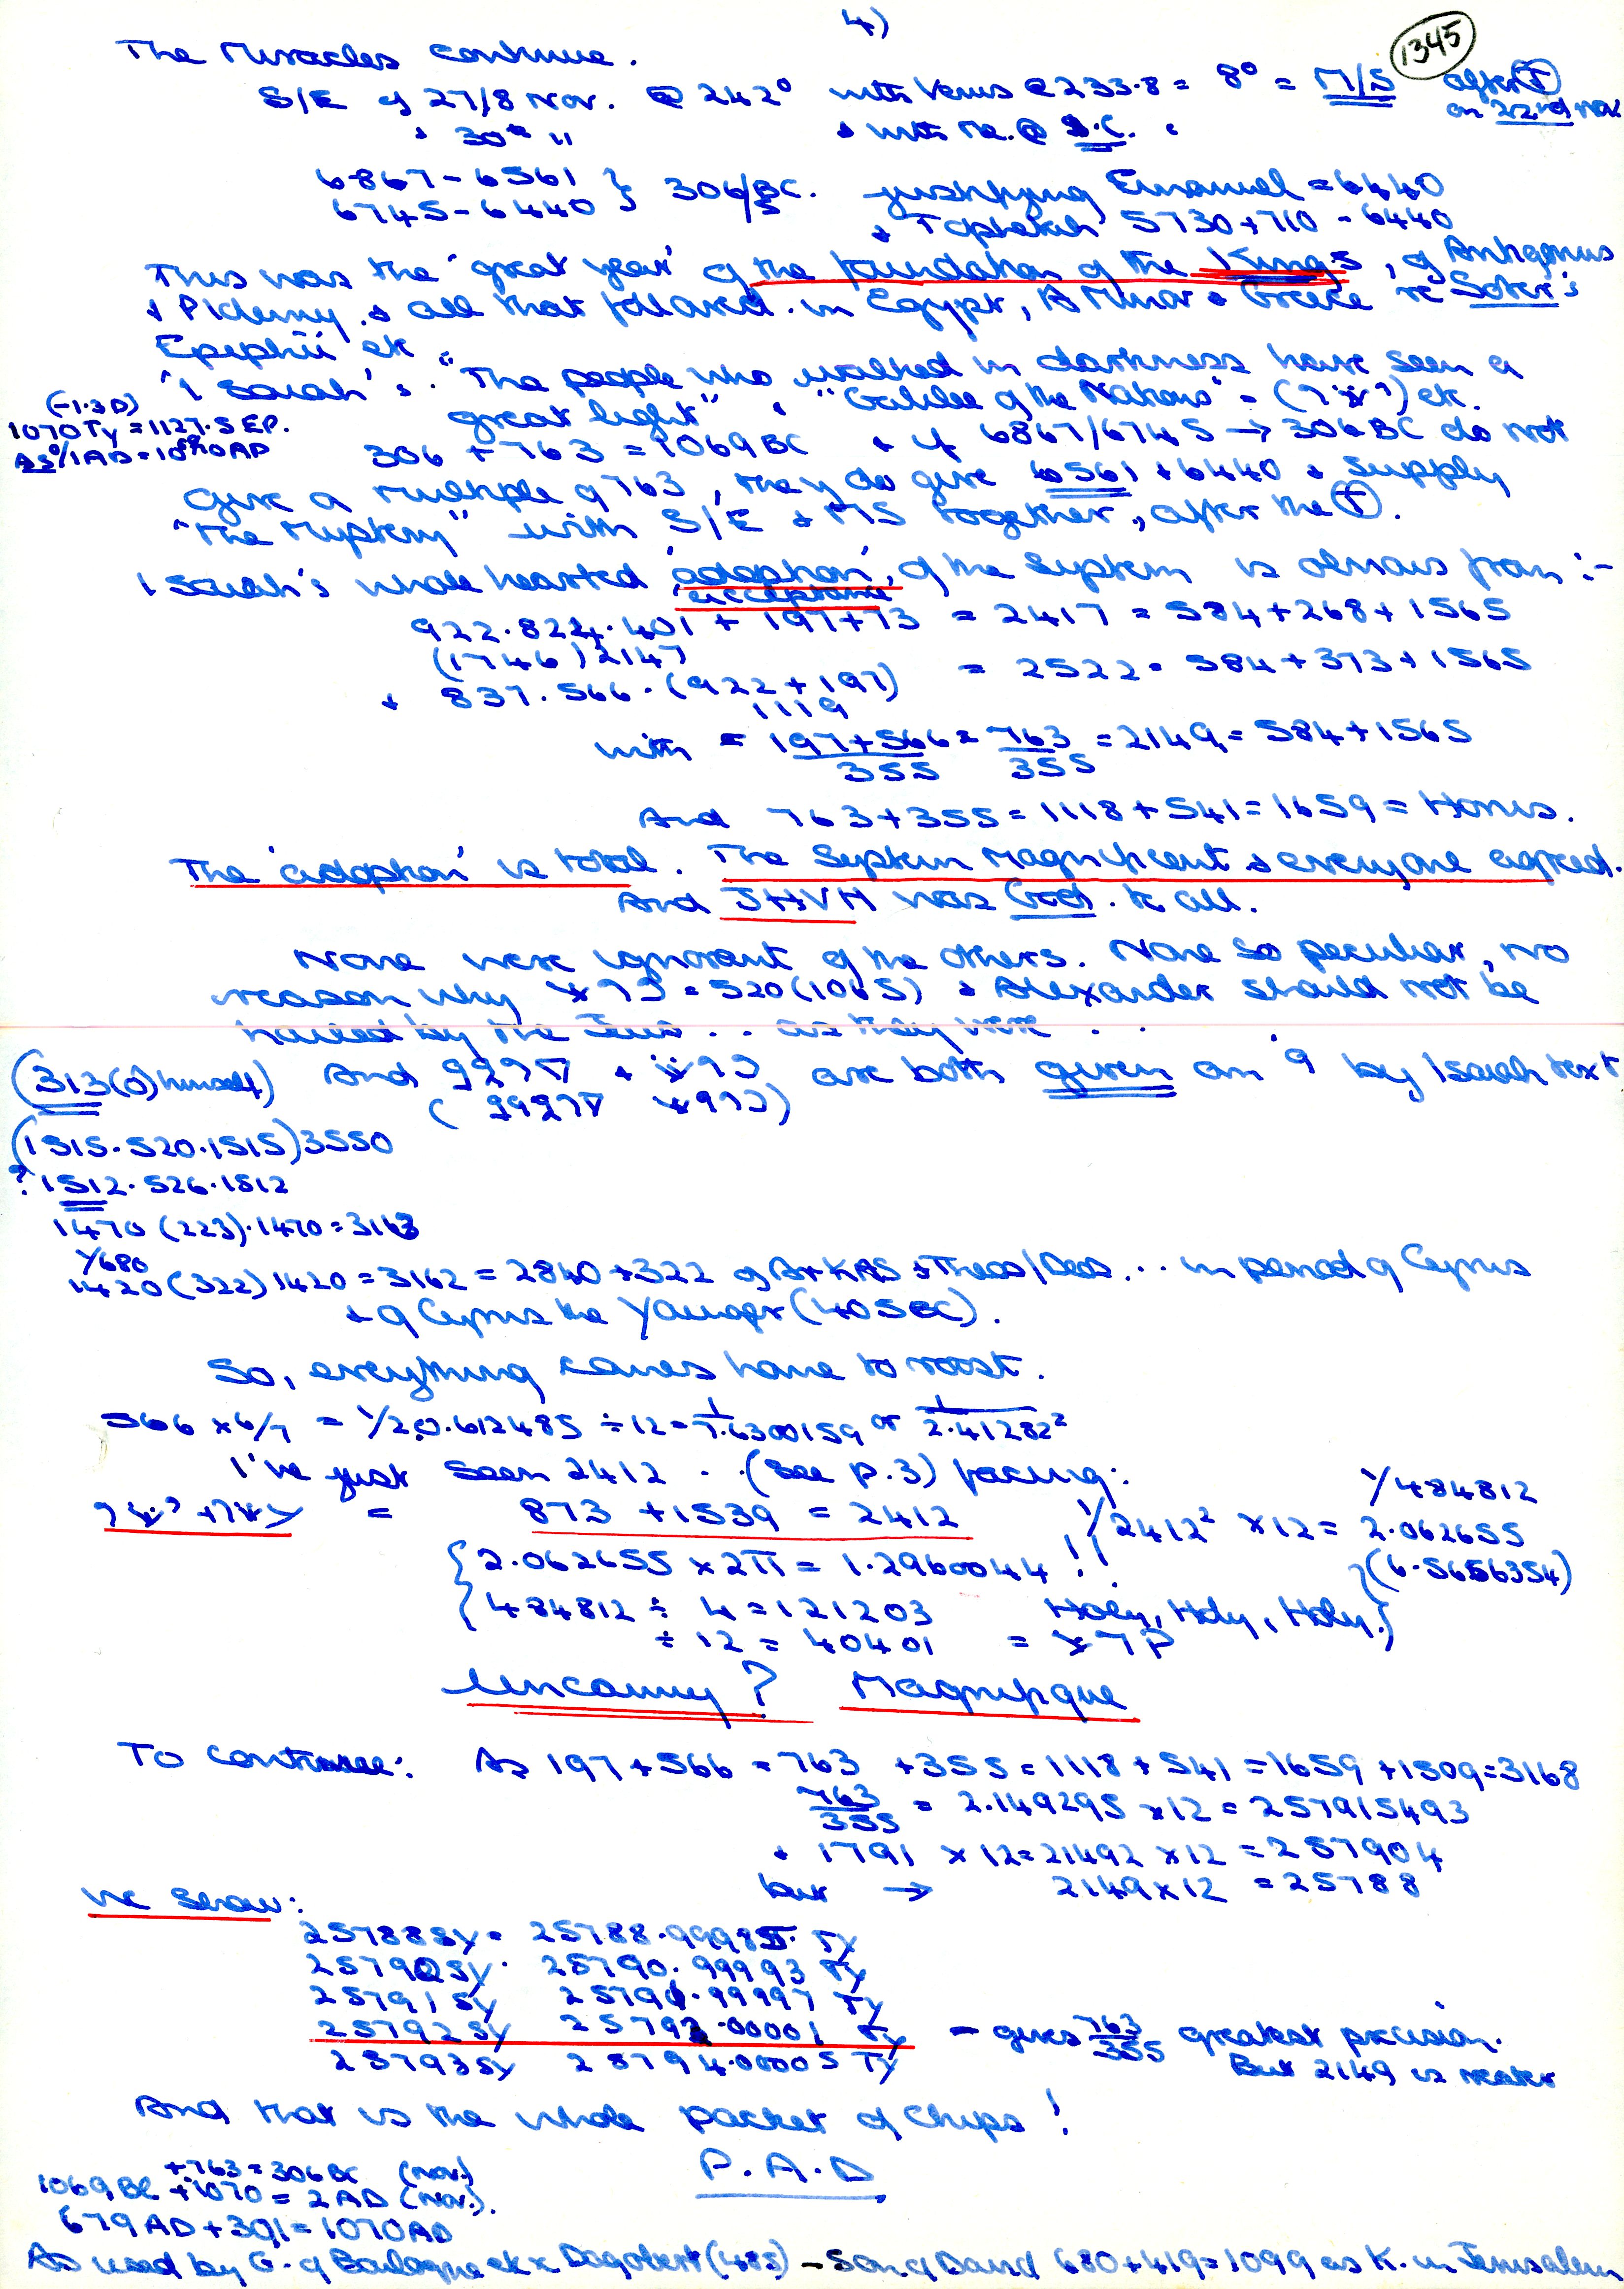 4)
1345
The Miracles continue.
S/E of 27/8 Nov. @ 242° with Venus @ 233.8 = 8° = M/S after (T)
+ 30th " + with Me. @ S.C. on 22nd Nov
6867-6561 } 306/BC. justifying Emanuel = 6440
6745-6440 + Tophetah 5730+710 - 6440
This was the 'great year' of the foundation of the Kings, of Antigonus
+ Ptolemy, + all that followed. in Egypt, A Minor + Greece re Soter's
Epiphii etc
'Isaiah's. "The people who walked in darkness have seen a
great light" , "Galilee of the Nations" = etc.
(-1.3D)
1070 Ty = 1127.5 EP.
306 + 763 = 1069 BC + if 6867/6745 → 306 BC do not
give a multiple of 763, they do give 6561 + 6440 + supply
"The Mystery" with S/E + MS together, after the (T).
Isaiah's whole hearted 'adoption', of the System is obvious from :-
acceptance
922.824.401 + 197+73 = 2417 = 584+268+1565
(1746) 2147
+ 837.566.(922+197) = 2522 = 584+373+1565
1119
with = 197+566 = 763 = 2149 = 584+1565
355 355
And 763+355=1118+541=1659 = Horus.
The 'adoption' is total. The System Magnificent + everyone agreed.
And JHVH was God. to all.
None were ignorant of the others. None so peculiar, no
reason why = 520 (1065) + Alexander should not be
hailed by the Jews .. as they were . .
(313(0) himself) And + are both given an '9 by Isaiah text
(1515.520.1515) 3550
? 1512.526.1512
1470 (223).1470 = 3163
Y/680
1420 (322) 1420 = 3162 = 2840+322 of + Thess/Deos... in period of Cyrus
+ of Cyrus the Younger (405BC).
So, everything comes home to roost.
566 x 6/7 = 1/20.612485 ÷ 12 = 1/7.6300159 or 1/2.41282²
I've just seen 2412 . . (see p.3) facing:
= 873 + 1539 = 2412 1/2412² x 12 = 2.062655
1/484812
{ 2.062655 x 2π = 1.2960044 !! (6.5656354)
{ 484812 ÷ 4 = 121203 Holy, Holy, Holy. }
÷ 12 = 40401
Uncanny? Magnifique
To continue: As 197+566 = 763 +355=1118+541=1659+1509=3168
763/355 = 2.149295 x 12 = 257915493
+ 1791 x 12 = 21492 x 12 = 257904
but → 2149 x 12 = 25788
we show:
25788 SY = 25788.99985 TY
25790 SY · 25790.99993 TY
25791 SY 25791.99997 TY
25792 SY 25793.00001 TY - gives 763/355 greatest precision.
25793 SY 25794.00005 TY But 2149 is neater
And that is the whole packet of Chips!
P.A.D
+763 = 306 BC (Nov.)
1069 BC +1070 = 2 AD (Nov.)
679 AD + 391 = 1070 AD
As used by G. of Boulogne etc x Dagobert (485) - Son of David 680+419=1099 as K. in Jerusalem